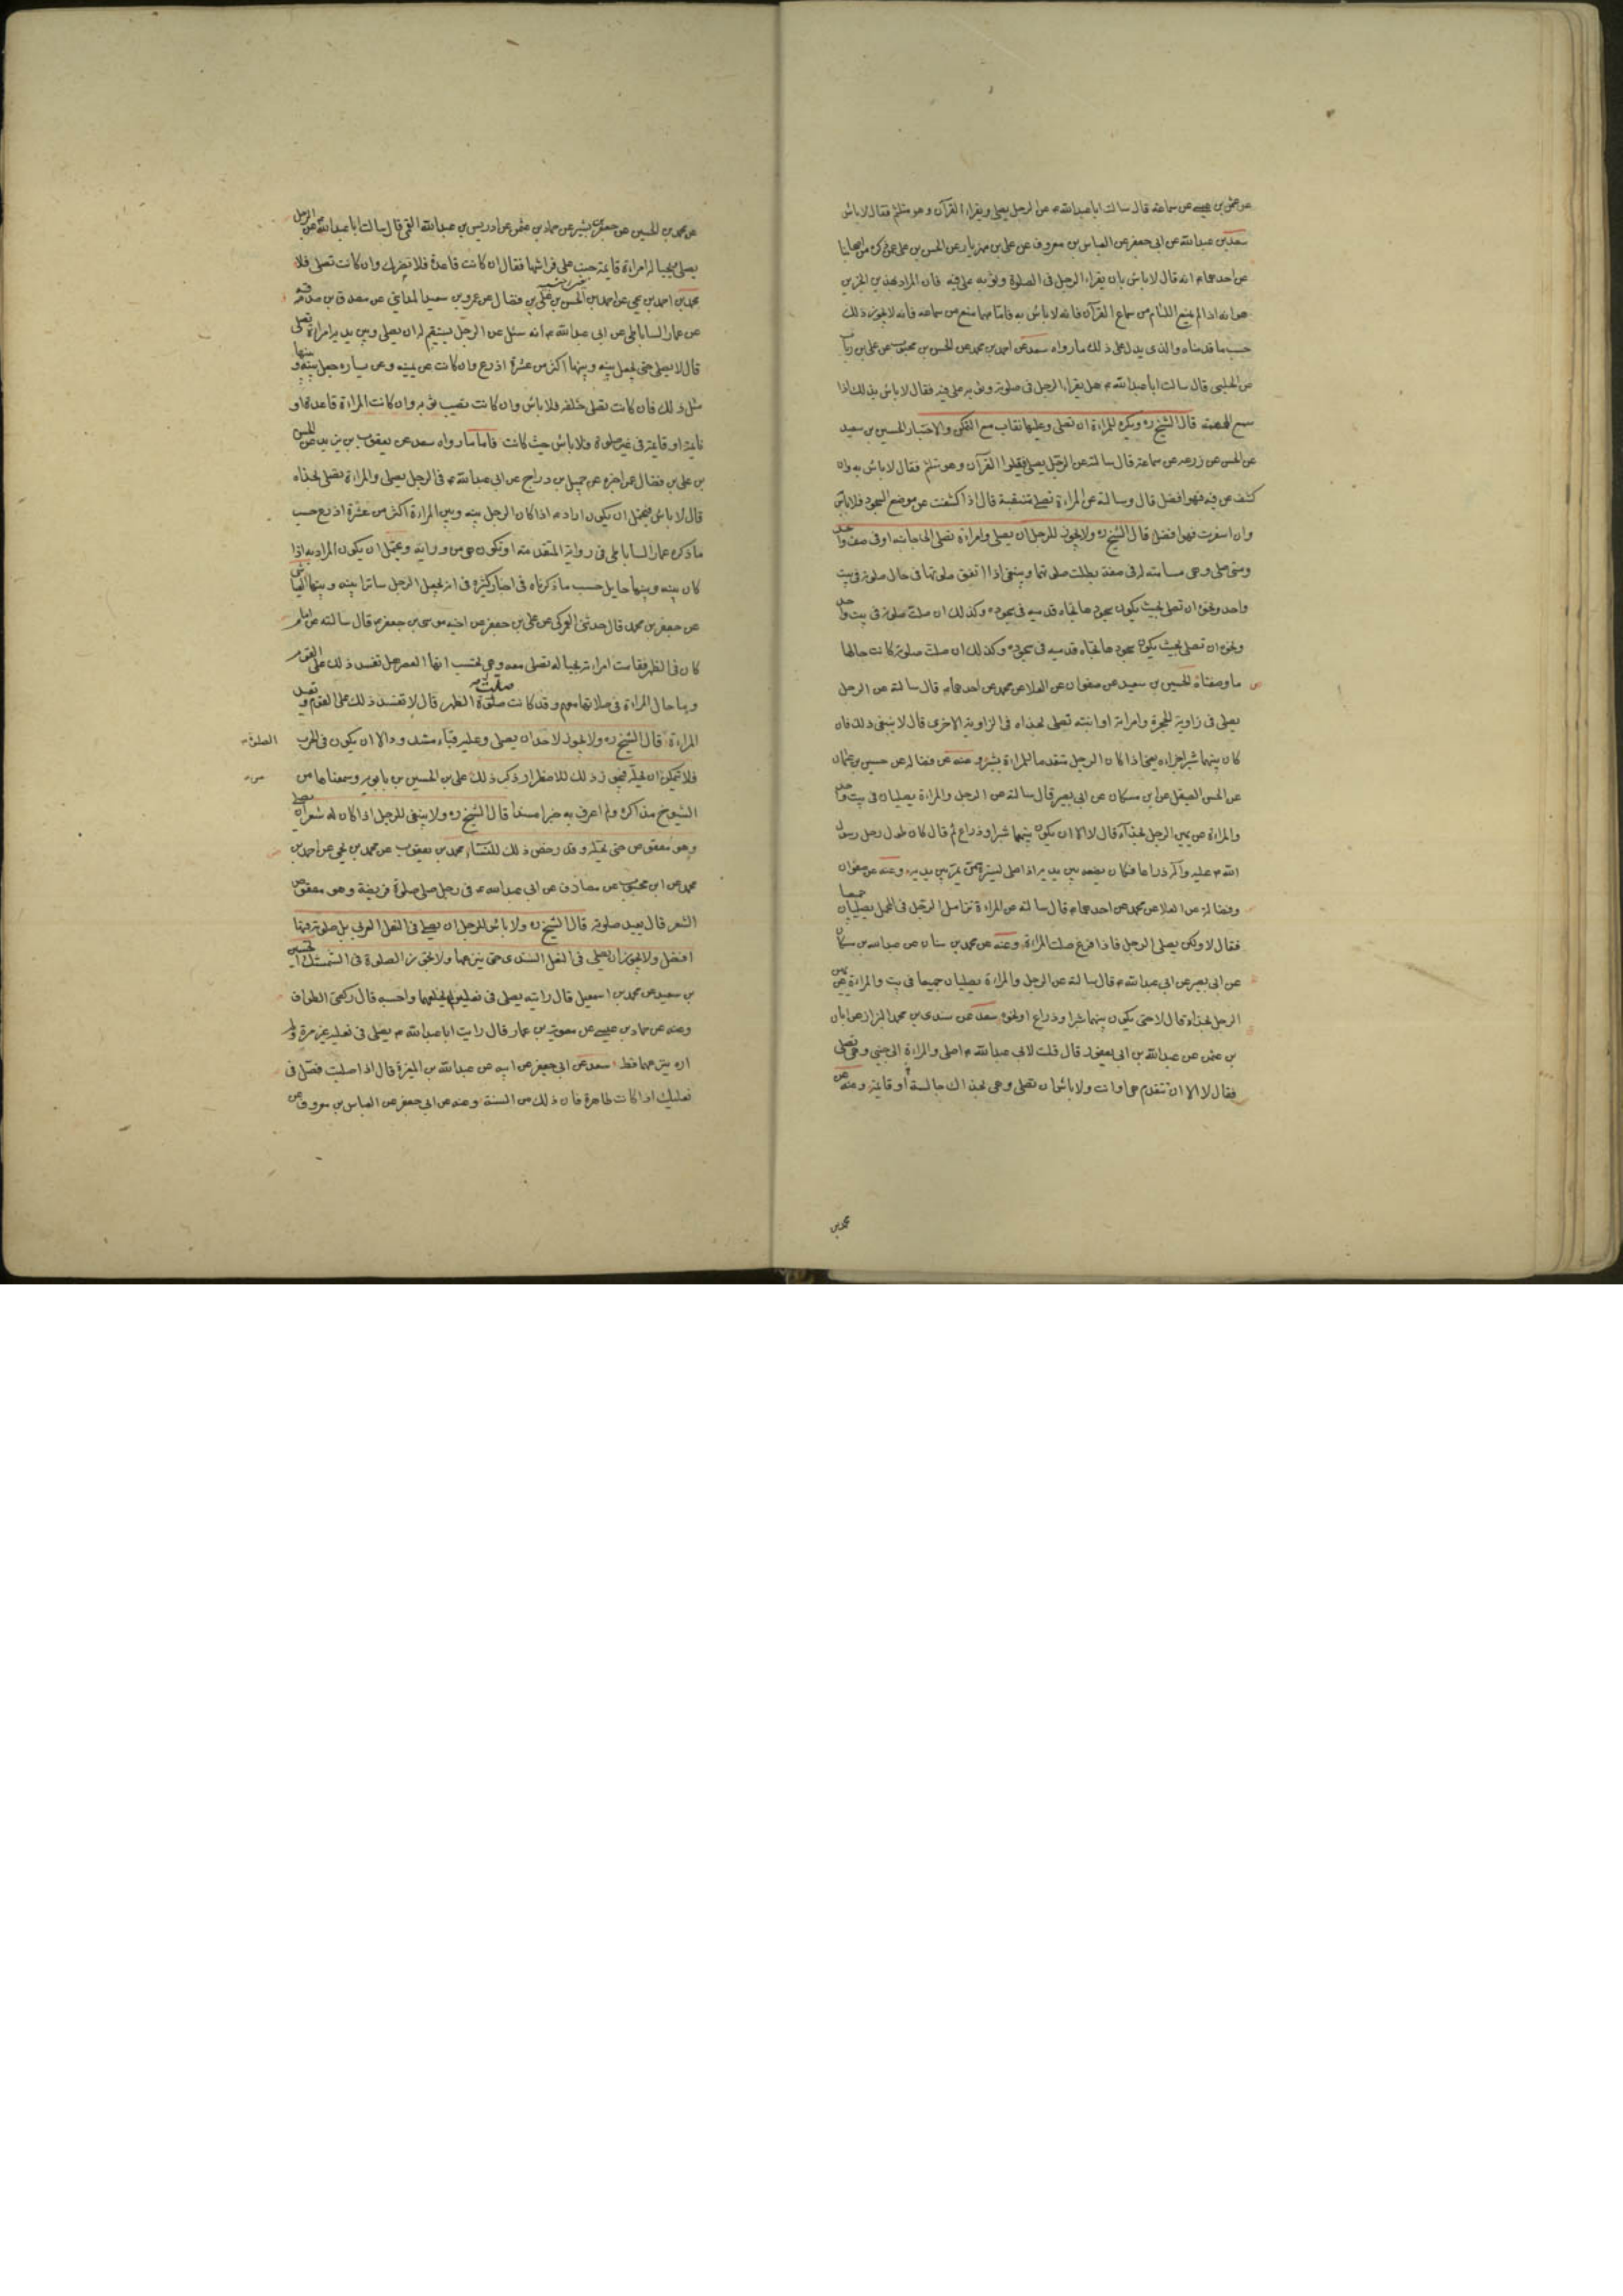 عن عثمن بن عيسى عن سماعة قال سالت اباعبدالله ع عن الرجل يصلى ويقراء القرآن وهو متلثم فقال لاباس
سعد بن عبدالله عن ابى جعفر عن العباس بن معروف عن على بن مهزيار عن الحسن بن على عمن ذكره من اصحابنا
عن احدهما ع انه قال لاباس بان يقراء الرجل فى الصلوة وثوبه على فيه فان المراد بهذين الخبرين
هو انه اذا لم يمنع اللثام من سماع القرآن فانه لاباس به فاما مهما منع من سماعه فانه لايجوز ذلك
حسب ما قدمناه والذى يدل على ذلك ما رواه سعد عن احمد بن محمد عن الحسن بن محبوب عن على بن رياب
عن الحلبى قال سالت اباعبدالله ع هل يقراء الرجل فى صلوته وثوبه على فيه فقال لاباس بذلك اذا
سمع الهمهمة قال الشيخ ره ويكره للمراءة ان تصلى وعليها نقاب مع التمكن والاختيار الحسين بن سعيد
عن الحسن عن زرعه عن سماعة قال سالته عن الرجل يصلى فيتلوا القرآن وهو متلثم فقال لاباس به وان
كشف عن فيه فهو افضل قال وسالته عن المراءة تصلى متنقبة قال اذا كشفت عن موضع السجود فلاباس
وان اسفرت فهو افضل قال الشيخ ره ولايجوز للرجل ان يصلى وامراءة تصلى الى جانبه او فى صف واحد
ومتى صلى وهى مسامتة له فى صفة بطلت صلوتهما وينبغى اذا اتفق صلوتها فى حال صلوته فى بيت
واحد ونحوه ان تصلى بحيث يكون سجودها تجاه قدميه فى سجوده وكذلك ان صلت صلوته فى بيت واحد
ونحوه ان تصلى بحيث يكون سجودها تجاه قدميه فى سجوده وكذلك ان صلت صلوته كانت حالها
ما وصفناه الحسين بن سعيد عن صفوان عن العلا عن محمد عن احدهما ع قال سالته عن الرجل
يصلى فى زاوية الحجرة وامراته او ابنته تصلى بحذاه فى الزاوية الاخرى قال لاينبغى ذلك فان
كان بينهما شبر اجزاه يعنى اذا كان الرجل متقدما للمراءة بشبر وعنه عن فضاله عن حسين بن عثمان
عن الحسن الصيقل عن ابن مسكان عن ابى بصير قال سالته عن الرجل والمراءة يصليان فى بيت واحد
والمراءة عن يمين الرجل بحذآه قال لا الا ان يكون بينهما شبر او ذراع ثم قال كان طول رحل رسول
الله ص عليه وآله ذراعا فكان يضعه بين يديه اذا صلى ليستره ممن يمر بين يديه وعنه عن صفوان
وفضالة عن العلا عن محمد عن احدهما ع قال سالته عن المراءة تزامل الرجل فى المحمل يصليان جميعا
فقال لا ولكن يصلى الرجل فاذا فرغ صلت المراءة وعنه عن محمد بن سنان عن عبدالله بن مسكان
عن ابى بصير عن ابى عبدالله ع قال سالته عن الرجل والمراءة يصليان جميعا فى بيت والمراءة عن يمين
الرجل بحذاه قال لا حتى يكون بينهما شبر او ذراع او نحوه سعد عن سندى بن محمد البزاز عن ابان
بن عثمن عن عبدالله بن ابى يعفور قال قلت لابى عبدالله ع اصلى والمراءة الى جنبى وهى تصلى
فقال لا الا ان تتقدم هى او انت ولاباس ان تصلى وهى بحذاك جالسة أو قايمة وعنه عن
محمد بن
عن محمد بن الحسين عن جعفر بن بشير عن حماد بن عثمن عن ادريس بن عبدالله القمى قال سالت اباعبدالله ع عن الرجل
يصلى وبحياله امراءة قايمة جنب على فراشها فقال ان كانت قاعدة فلا تضرك وان كانت تصلى فلا
محمد بن احمد بن يحيى عن احمد بن الحسن بن على بن فضال عن عمرو بن سعيد المداينى عن مصدق بن صدقه
عن عمار الساباطى عن ابى عبدالله ع انه سئل عن الرجل يستقيم له ان يصلى وبين يديه امراءة تصلى
قال لا يصلى حتى يجعل بينه وبينها اكثر من عشرة اذرع وان كانت عن يمينه وعن يساره جعل بينه وبينها
مثل ذلك فان كانت تصلى خلفه فلاباس وان كانت تصيب ثوبه وان كانت المراءة قاعدة او
نايمة او قايمة فى غير صلوة فلاباس حيث كانت فاما ما رواه سعد عن يعقوب بن يزيد عن الحسن
بن على بن فضال عن اخبره عن جميل بن دراج عن ابى عبدالله ع فى الرجل يصلى والمراءة تصلى بحذاه
قال لاباس فيحتمل ان يكون اراد ع اذا كان الرجل بينه وبين المراءة اكثر من عشرة اذرع حسب
ما ذكره عمار الساباطى فى رواية المتقدمة او تكون هى من ورائه ويحتمل ان يكون المراد به اذا
كان بينه وبينها حايل حسب ما ذكرناه فى اخبار كثيرة فى انه يجعل الرجل ساترا بينه وبينها العياشى
عن جعفر بن محمد قال حدثنى العمركى عن على بن جعفر عن اخيه موسى بن جعفر ع قال سالته عن امام
كان فى الظهر فقامت امراءته بحياله تصلى معه وهى تحسب انها العصر هل تفسد ذلك على القوم
وما حال المراءة فى صلاتها معهم وقد كانت صلت صلوة الظهر قال لا تفسد ذلك على القوم وتعيد
المراءة قال الشيخ ره ولايجوز لاحد ان يصلى وعليه قباء مشدود الا ان يكون فى الحرب
فلا يتمكن ان يحله فيجوز ذلك للاضطرار ذكر ذلك على بن الحسين بن بابويه وسمعناها من
الشيوخ مذاكرة ولم اعرف به خبرا مسندا قال الشيخ ره ولاينبغى للرجل اذا كان له شعر ان يصلى
وهو معقوص حتى يحله وقد رخص ذلك للنساء محمد بن يعقوب عن محمد بن يحيى عن احمد بن
محمد عن ابن محبوب عن مصادف عن ابى عبدالله ع فى رجل صلى صلوة فريضة وهو معقوص
الشعر قال يعيد صلوته قال الشيخ ره ولاباس للرجل ان يصلى فى النعل العربى بل صلوته فيها
افضل ولايجوز ان يصلى فى النعل السندى حتى ينزعها ولايجوز الصلوة فى الشمشك الحسين
بن سعيد عن محمد بن اسمعيل قال رايته يصلى فى نعليه لم يخلعهما واحسبه قال ركعتى الطواف
وعنه عن حماد بن عيسى عن معوية بن عمار قال رايت اباعبدالله ع يصلى فى نعليه غير مرة ولم
اره ينزعهما قط سعد عن ابى جعفر عن ابيه عن عبدالله بن المغيرة قال اذا صليت فصل فى
نعليك اذا كانت طاهرة فان ذلك من السنة وعنه عن ابى جعفر عن العباس بن معروف عن